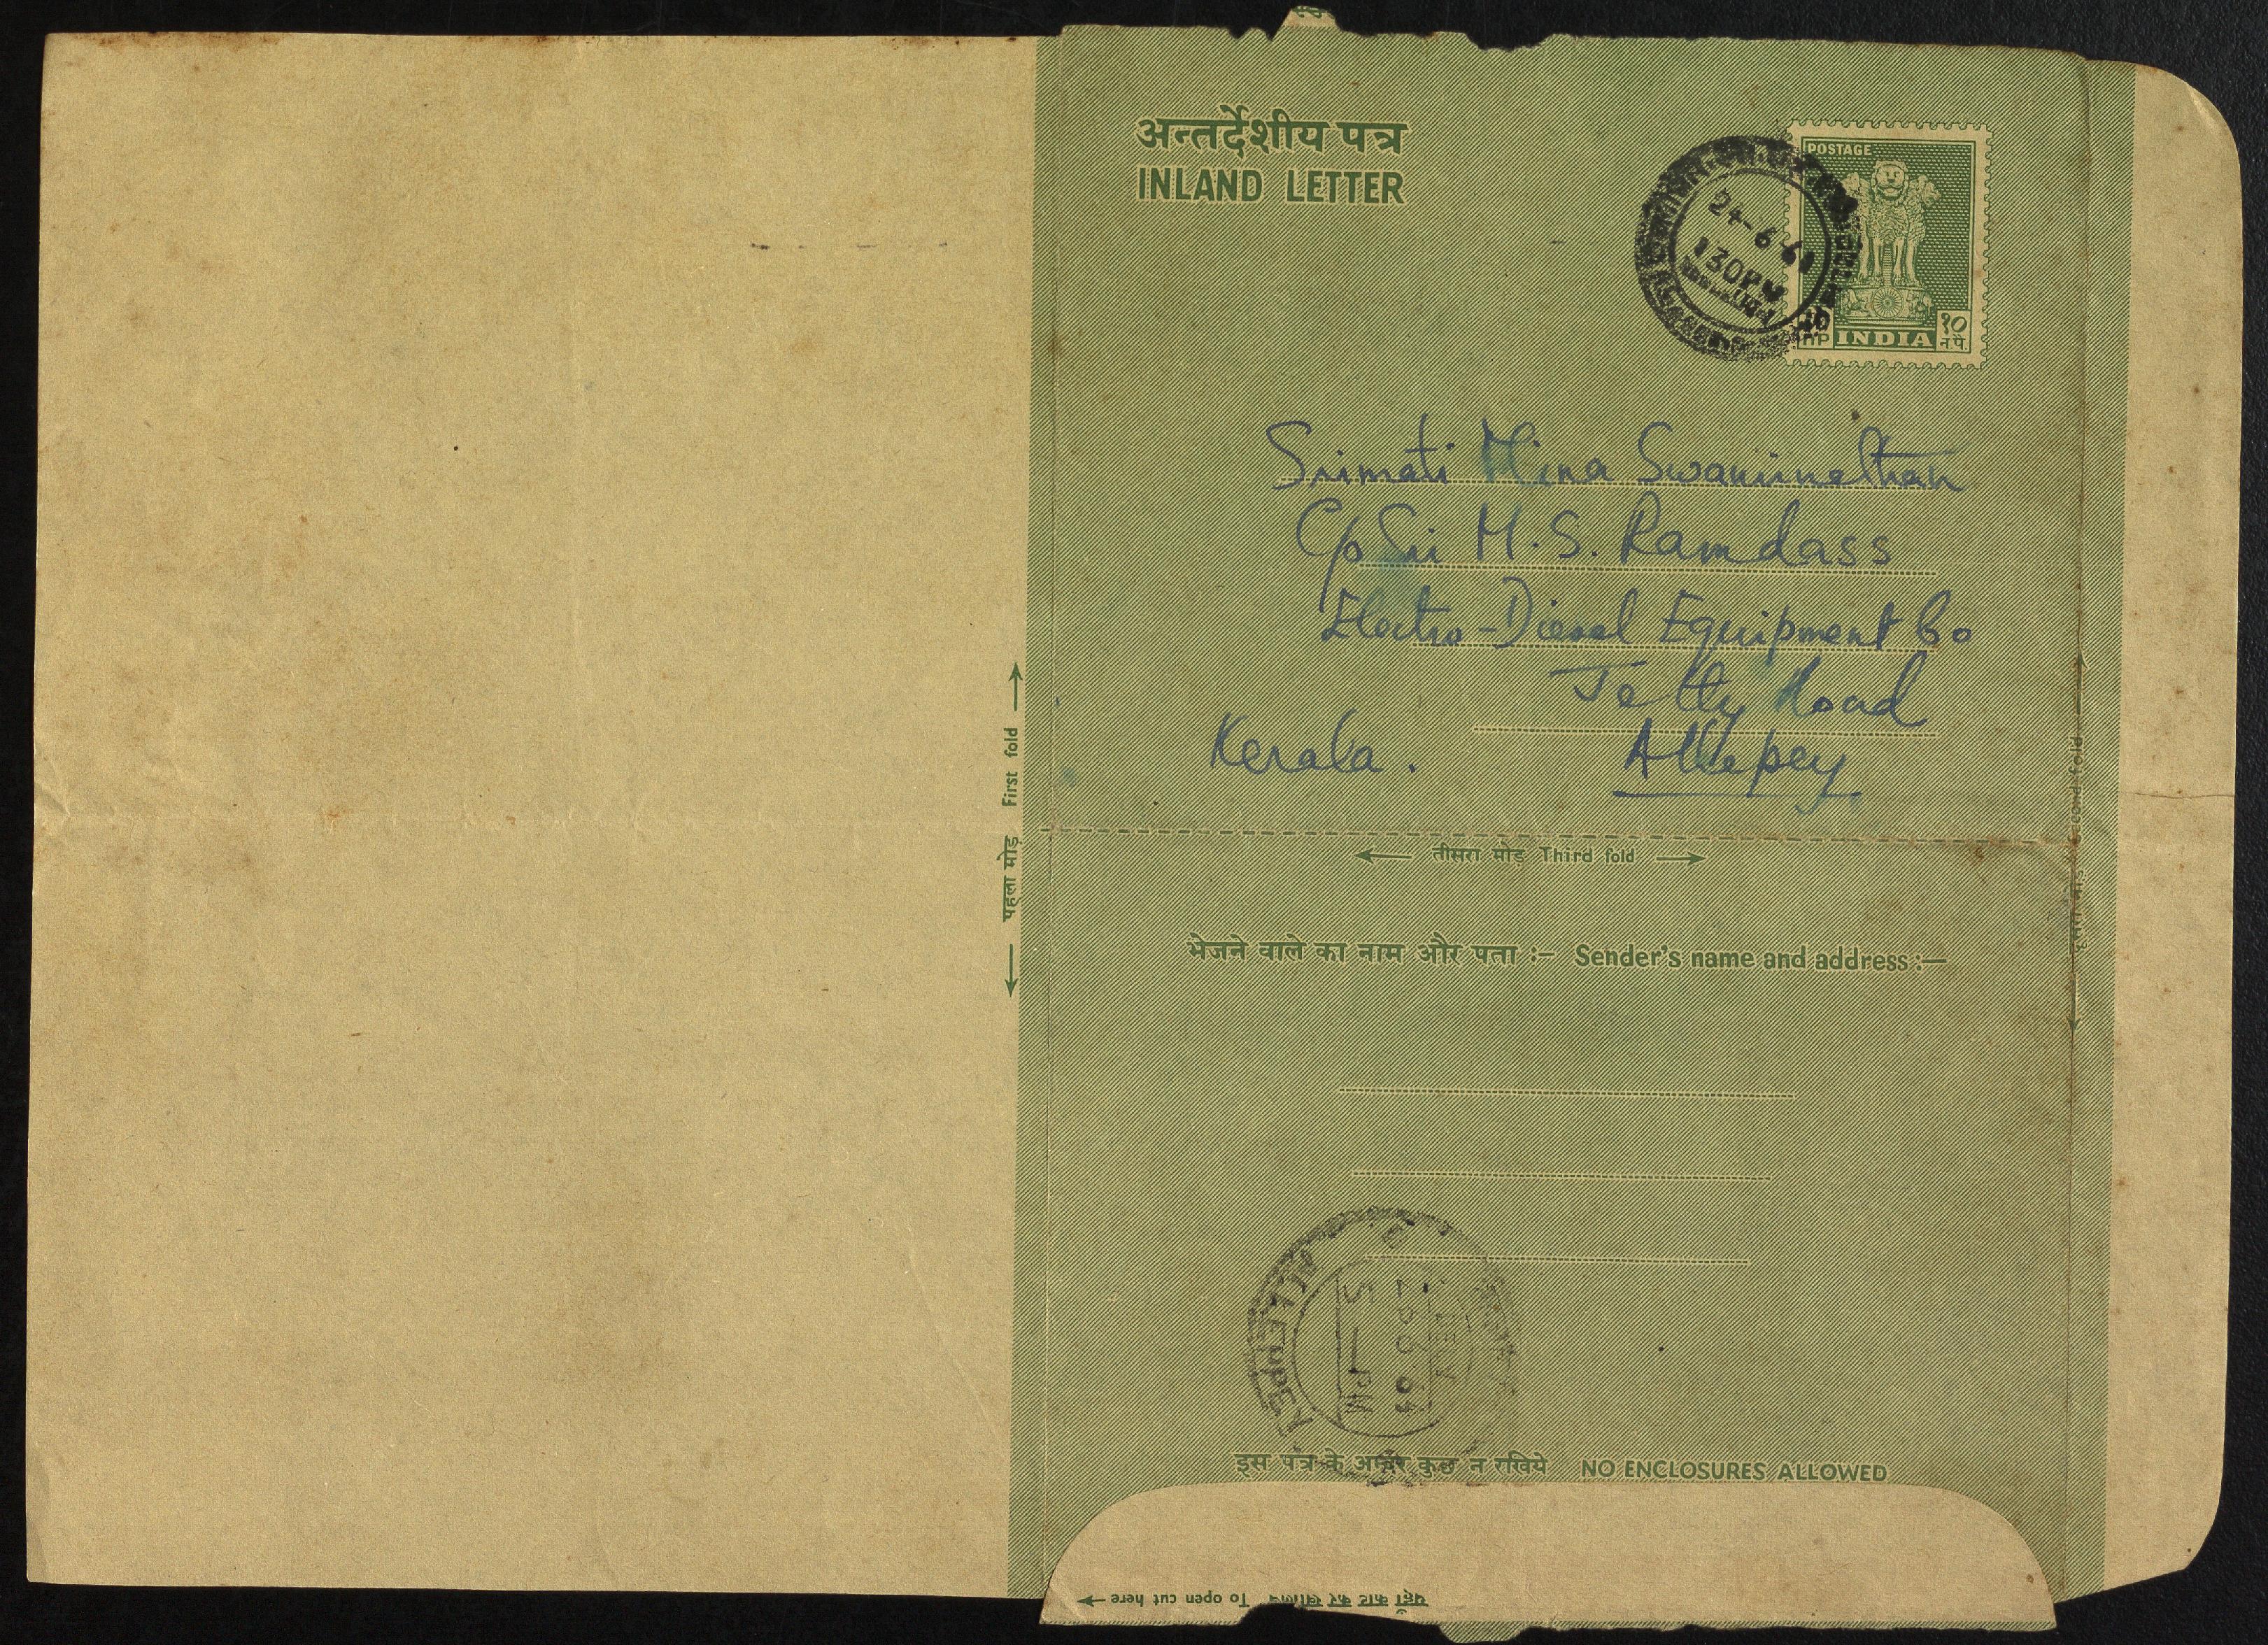 अन्तर्देशीय पत्र
INLAND LETTER
POSTAGE
24-6-61
130PM
10
nP INDIA १० न.पै.
Srimati Mina Swaminathan
C/o Sri M.S. Ramdass
Electro-Diesel Equipment Co
Jetty Road
Kerala. Allepey
पहला मोड़ First fold
तीसरा मोड़ Third fold
Second fold
भेजने वाले का नाम और पता :— Sender's name and address :—
ALLEPPEY
इस पत्र के अन्दर कुछ न रखिये NO ENCLOSURES ALLOWED
यहाँ काट कर खोलिये To open cut here